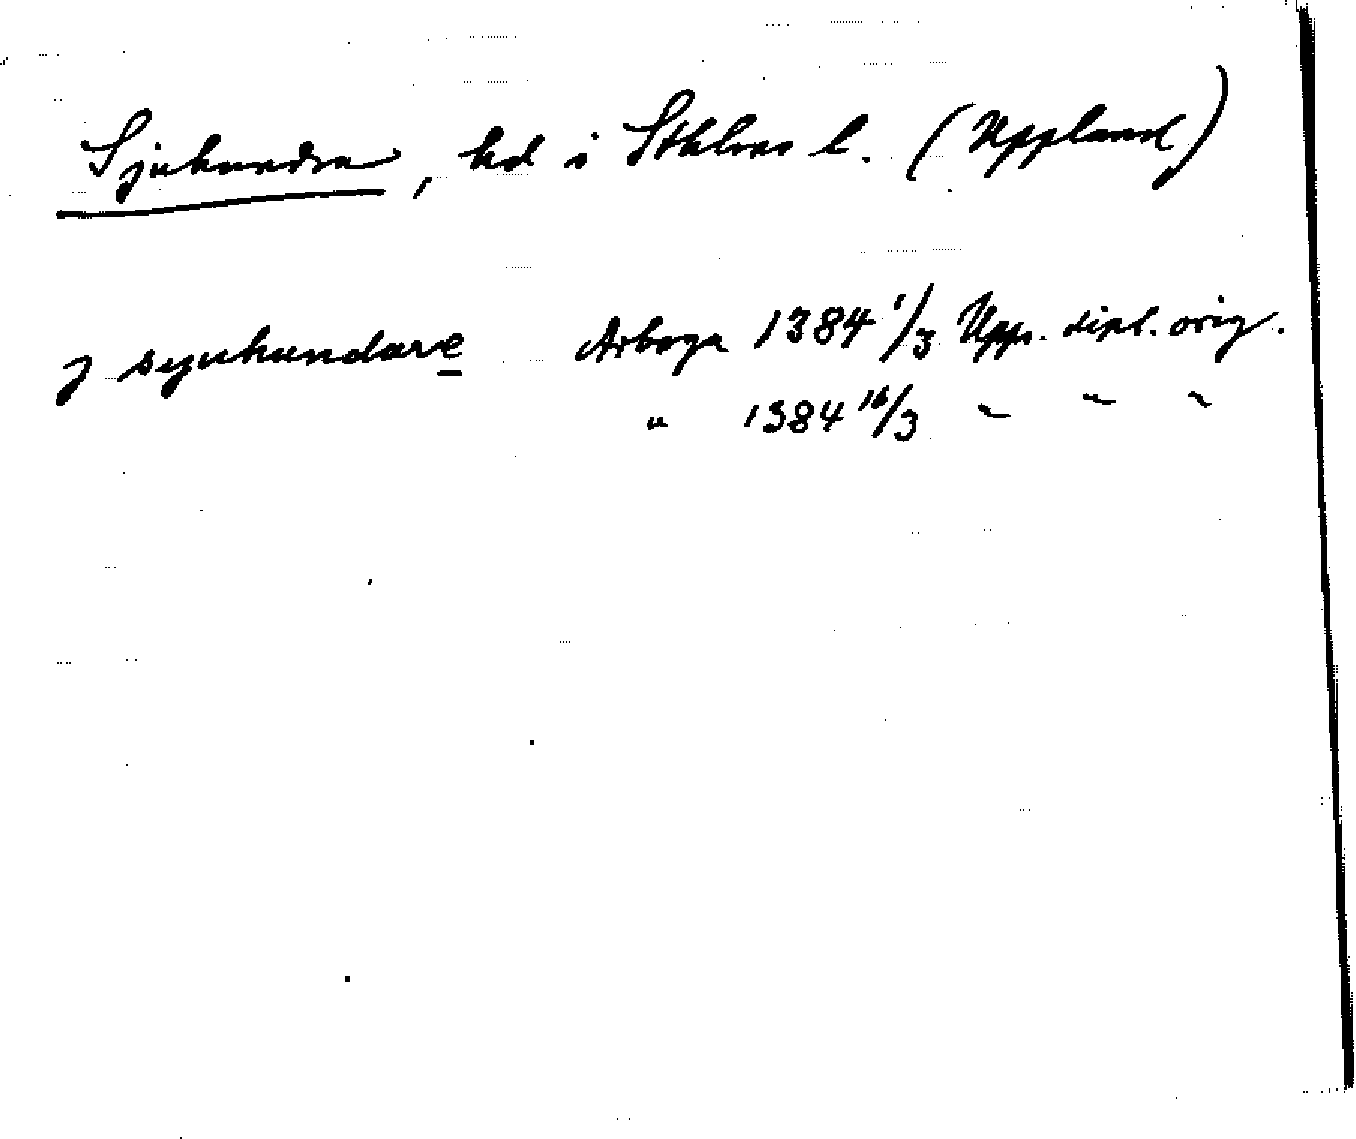 Sjuhundra, hd i Sthlms l. (Uppland)
j syuhundare Arboga 1384 1/3 Upps. dipl. orig.
" 1384 16/3 ~ ~ ~